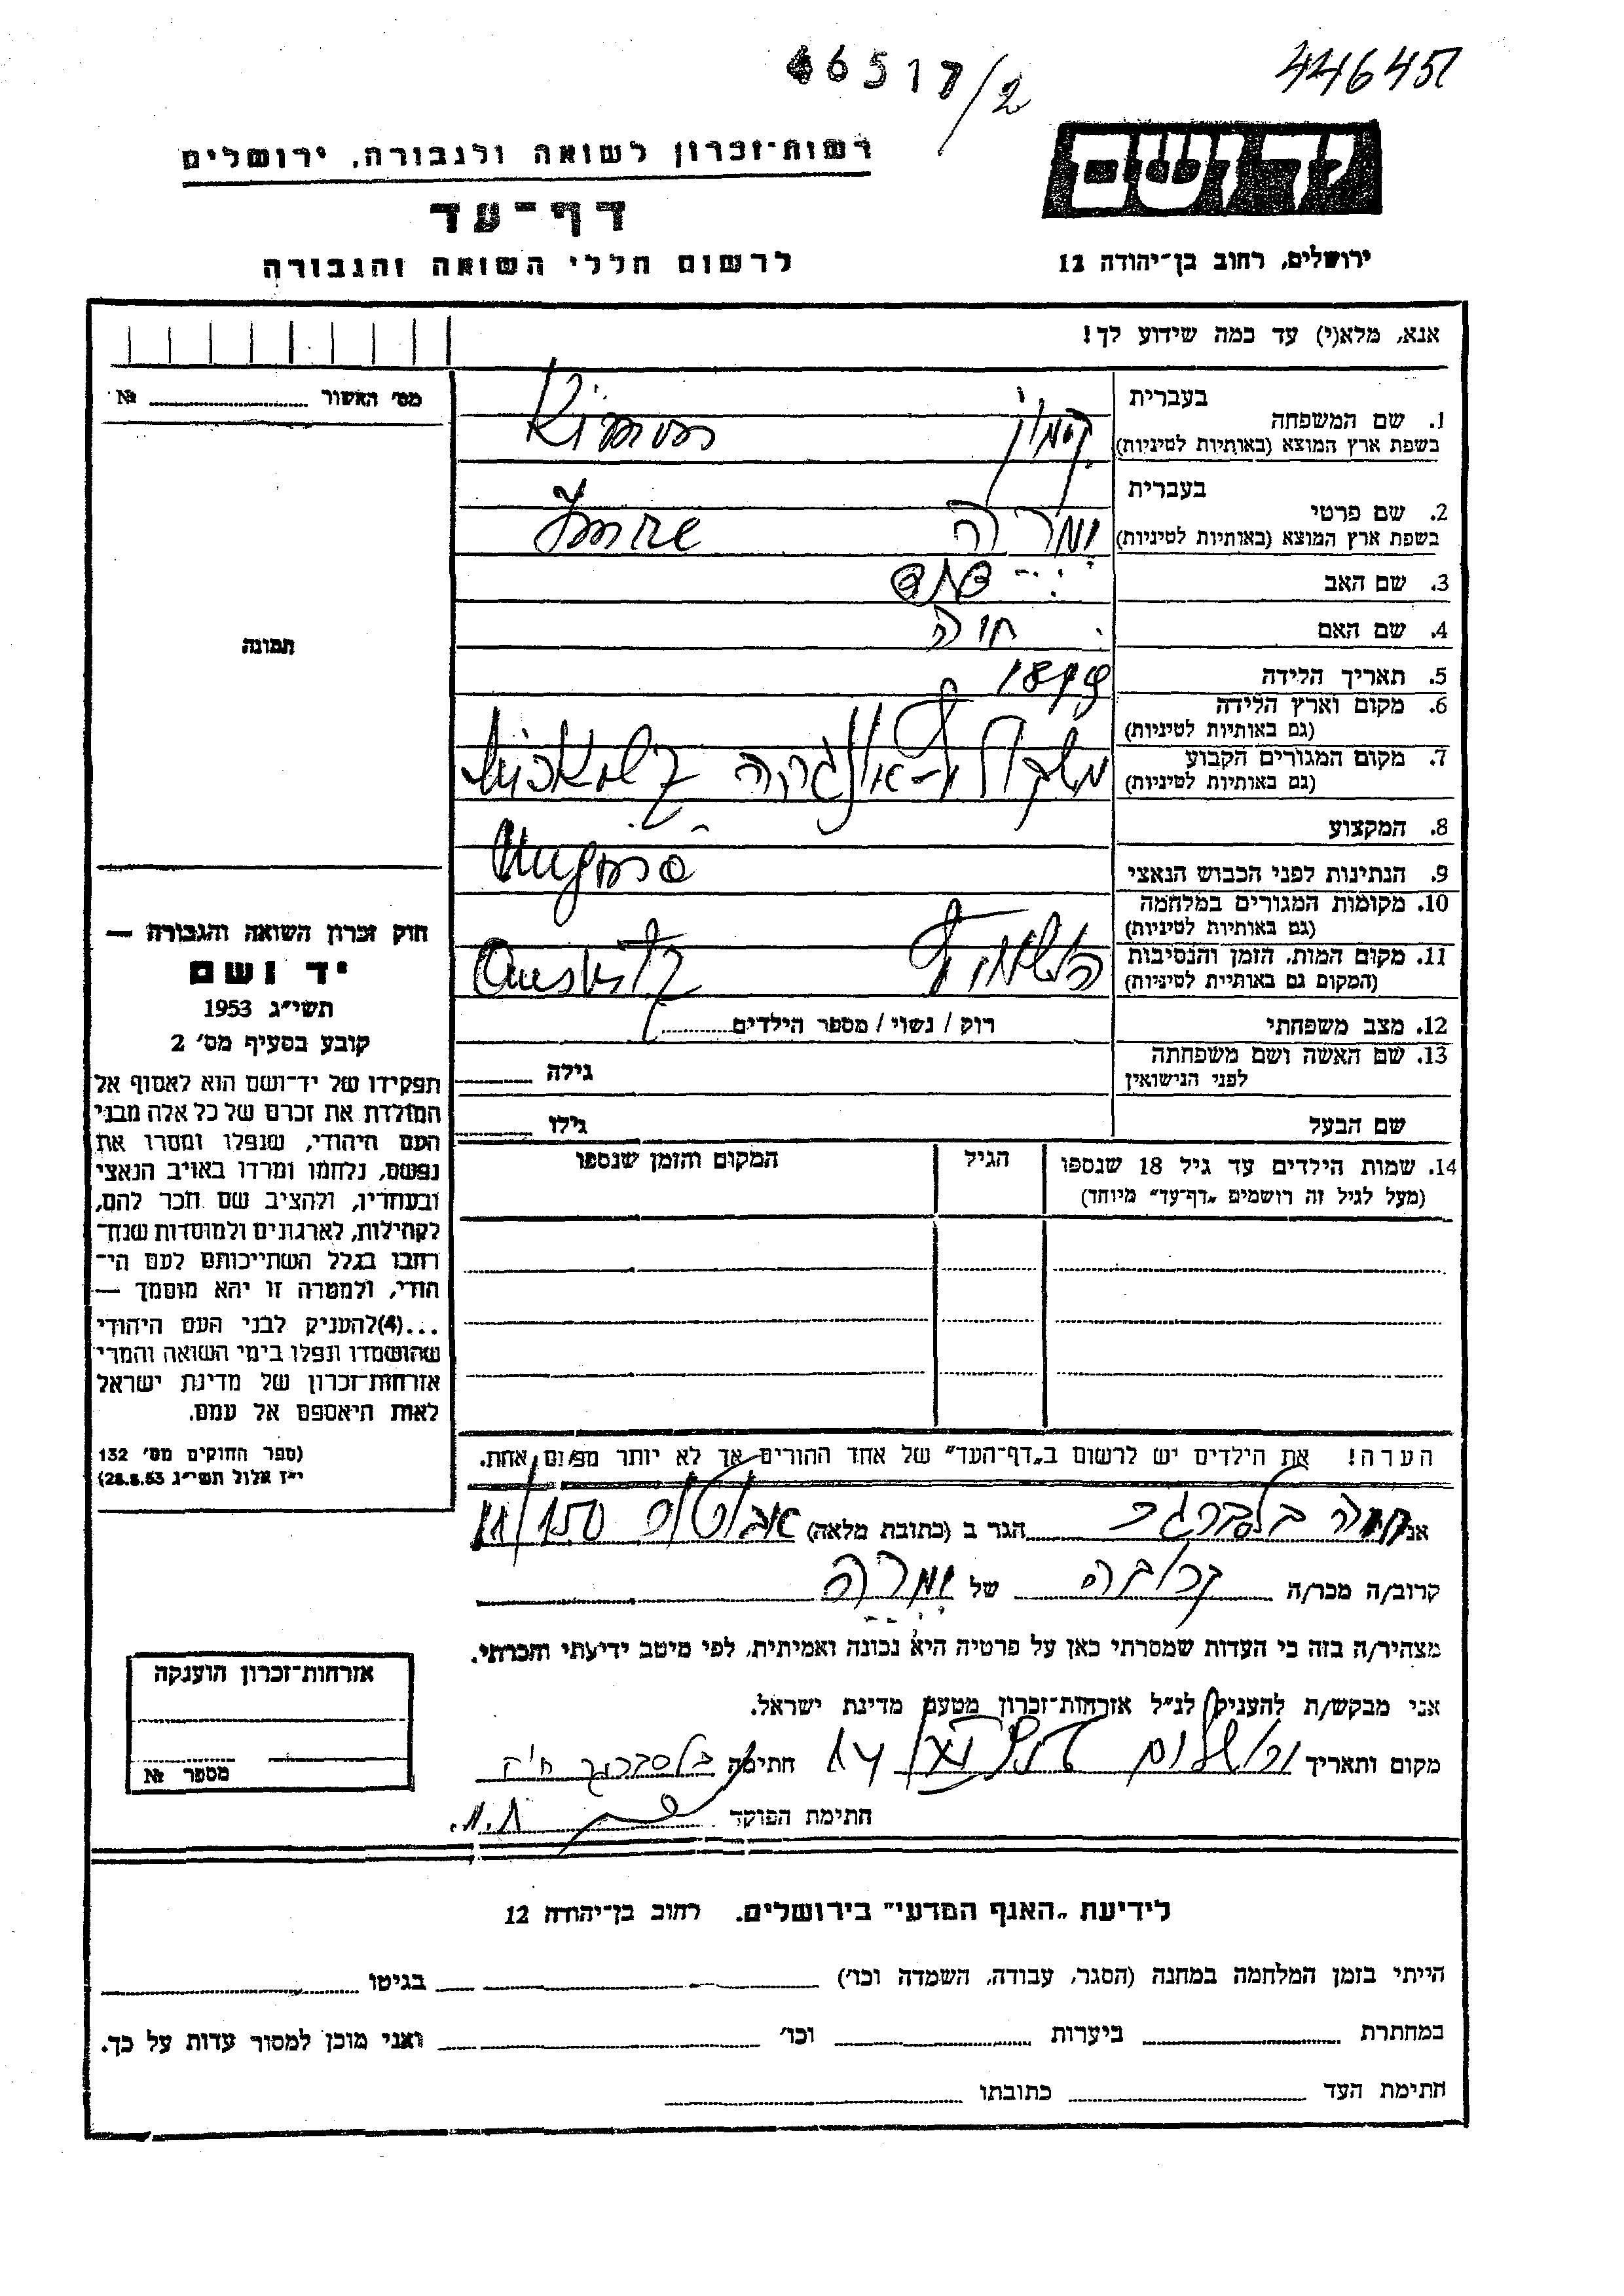 46517/2
446451
רשות־זכרון לשואה ולגבורה, ירושלים
דף־עד
לרשום חללי השואה והגבורה
יד ושם
ירושלים, רחוב בן־יהודה 12
אנא, מלא(י) עד כמה שידוע לך!
מס׳ האשור № 
תמונה
1. שם המשפחה
בעברית
קימון
בשפת ארץ המוצא (באותיות לטיניות)
Kimon
2. שם פרטי
בעברית
ימרה
בשפת ארץ המוצא (באותיות לטיניות)
Imre
3. שם האב
4. שם האם
חוה
5. תאריך הלידה
6. מקום וארץ הלידה
(גם באותיות לטיניות)
7. מקום המגורים הקבוע
(גם באותיות לטיניות)
8. המקצוע
9. הנתינות לפני הכבוש הנאצי
10. מקומות המגורים במלחמה
(גם באותיות לטיניות)
11. מקום המות, הזמן והנסיבות
(המקום גם באותיות לטיניות)
12. מצב משפחתי
רוק / נשוי / מספר הילדים
13. שם האשה ושם משפחתה
לפני הנישואין
גילה
שם הבעל
גילו
14. שמות הילדים עד גיל 18 שנספו
(מעל לגיל זה רושמים „דף־עד״ מיוחד)
הגיל
המקום והזמן שנספו
חוק זכרון השואה והגבורה —
יד ושם
תשי״ג 1953
קובע בסעיף מס׳ 2
תפקידו של יד־ושם הוא לאסוף אל
המולדת את זכרם של כל אלה מבני
העם היהודי, שנפלו ומסרו את
נפשם, נלחמו ומרדו באויב הנאצי
ובעוזריו, ולהציב שם וזכר להם,
לקהילות, לארגונים ולמוסדות שנח־
רבו בגלל השתייכותם לעם הי־
הודי, ולמטרה זו יהא מוסמך —
...(4)להעניק לבני העם היהודי
שהושמדו ונפלו בימי השואה והמרי
אזרחות־זכרון של מדינת ישראל
לאות היאספם אל עמם.
(ספר החוקים מס׳ 132
י״ז אלול תשי״ג 28.8.53)
הערה! את הילדים יש לרשום ב„דף־העד״ של אחד ההורים אך לא יותר מפעם אחת.
אני
הגר ב (כתובת מלאה)
קרוב/ה מכר/ה קרובה של ימרה
מצהיר/ה בזה כי העדות שמסרתי כאן על פרטיה היא נכונה ואמיתית, לפי מיטב ידיעתי והכרתי.
אני מבקש/ת להעניק לנ״ל אזרחות־זכרון מטעם מדינת ישראל.
מקום ותאריך ירושלים
חתימה
חתימת הפוקד
אזרחות־זכרון הוענקה
מספר №
לידיעת „האגף המדעי״ בירושלים. רחוב בן־יהודה 12
הייתי בזמן המלחמה במחנה (הסגר, עבודה, השמדה וכו׳) בגיטו
במחתרת ביערות וכו׳ ואני מוכן למסור עדות על כך.
חתימת העד כתובתו